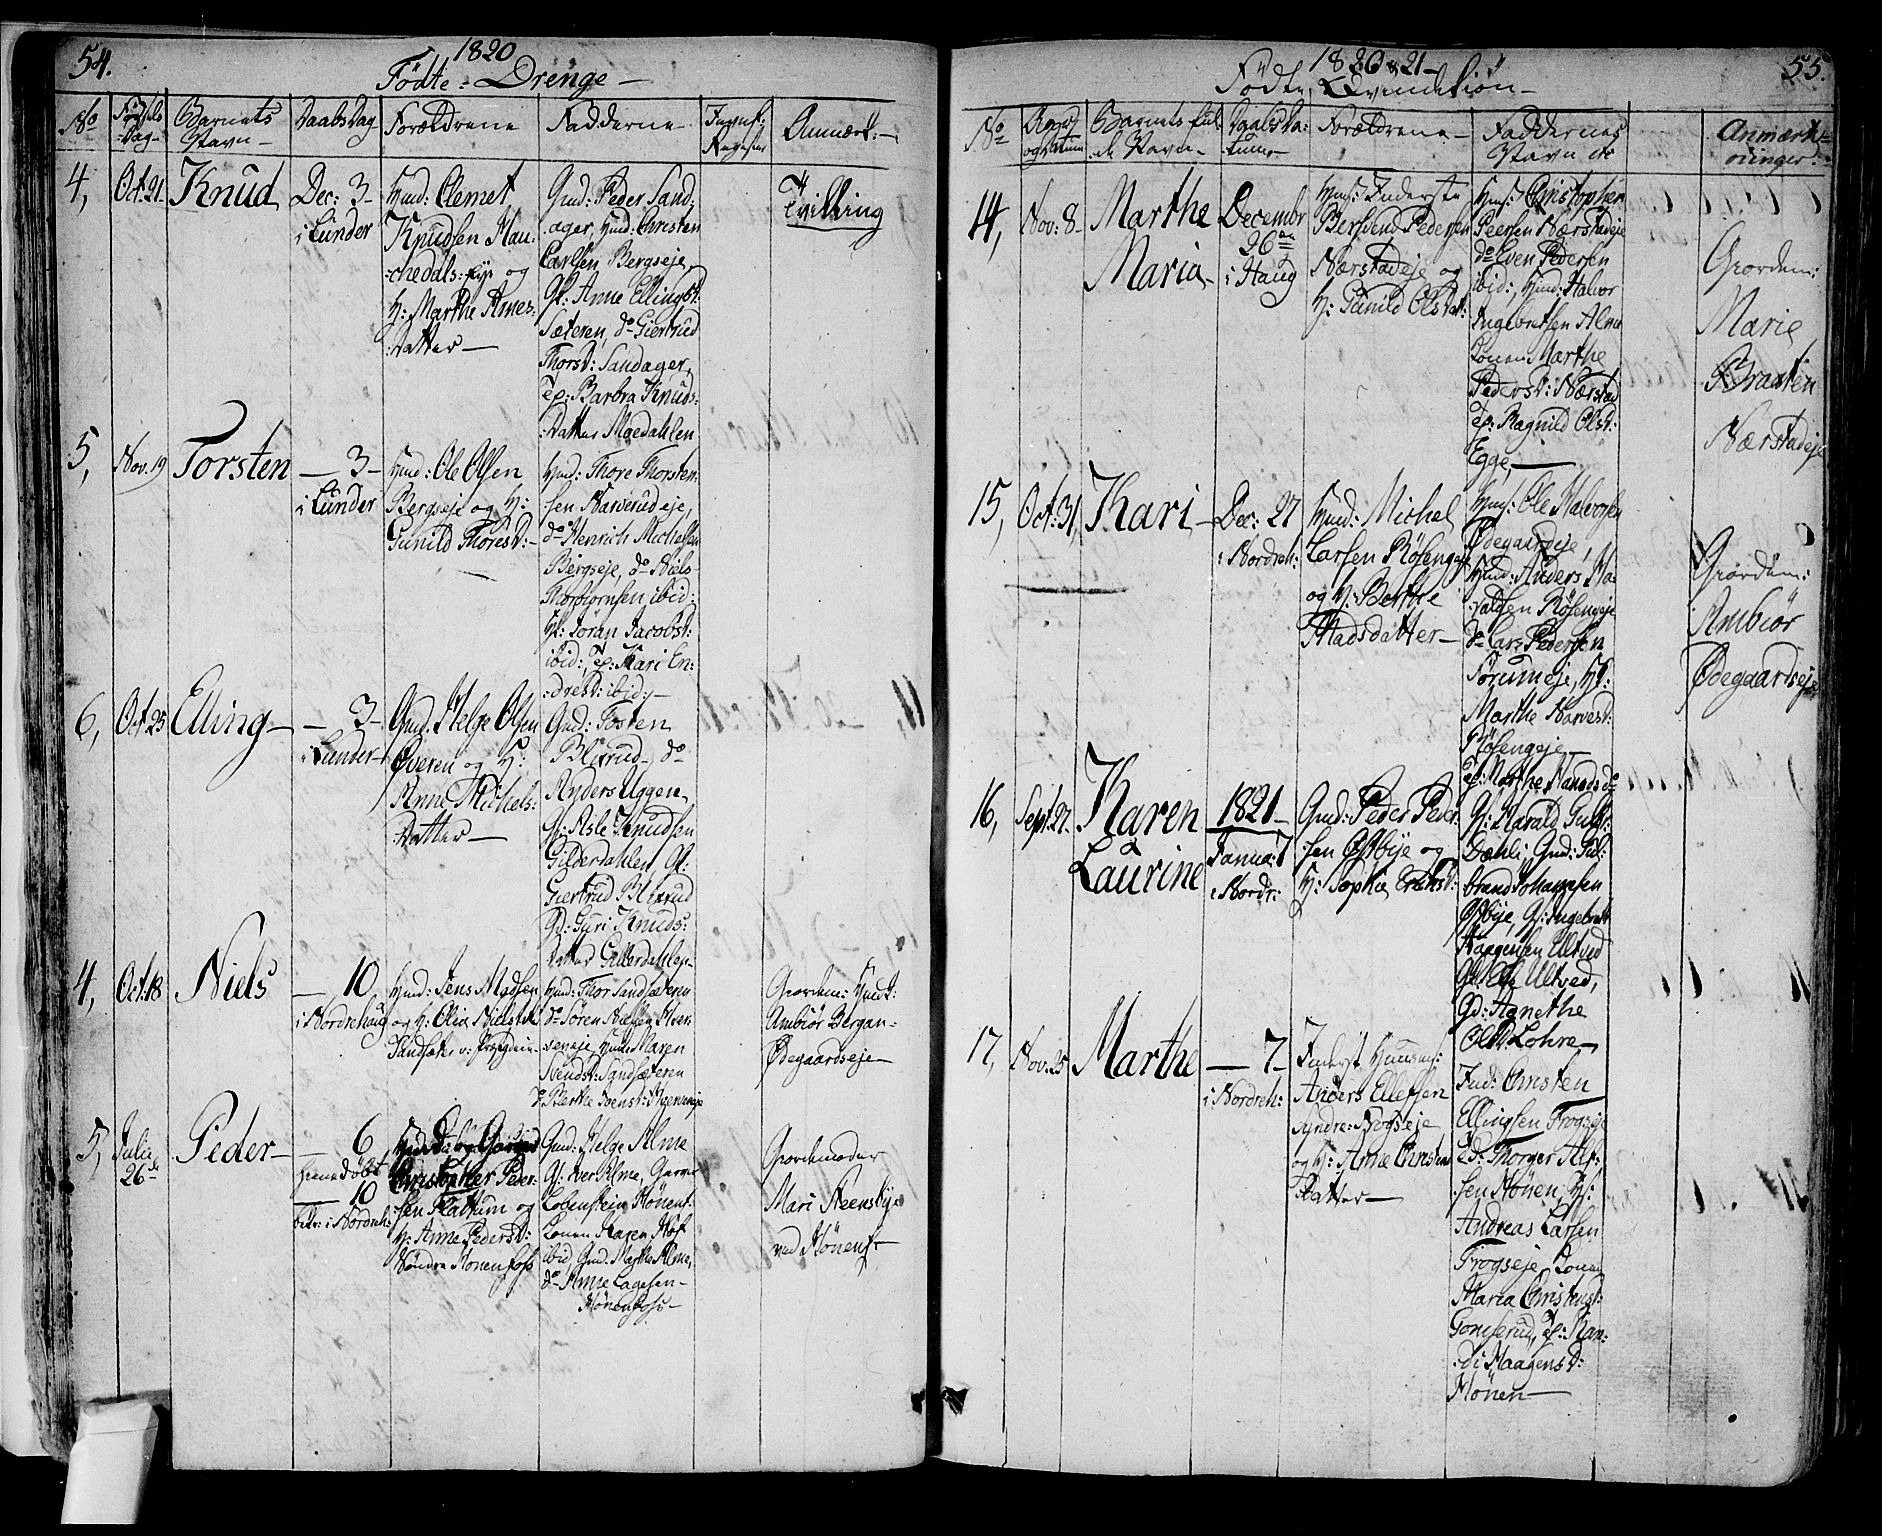 54.
1820
Födte = Drenge –
No
Födsels
Dag –
Barnets
Navn –
Daabs Dag
Forældrene
Fadderne
Anmærk: –
4,
Oct: 21
Knud
Dec: 3 –
i Lunder
Huusd: Clemet
Knudsen
og
H: Marthe Arnes:
:datter –
Gmd: Peder Sand,
:ager, Huusd: Christen
Carlsen Bergseje,
Gk: Anne Ellingsd:
Sæteren, do Giertrud
Thorsd: Sandager,
Tp: Barbra Knuds:
:datter Moedahlen
Tvilling
5,
Nov. 19
Torsten
– 3 –
i Lunder
Huusd: Ole Olsen
Bergseje og H:
Gunild Thoresd: –
Huusd: Thore Thorsten:
:sen Narverudeje,
do Henrich Michelsen
Bergseje, do Niels
Thorbiørnsen ibid:
Hk: Joran Jacobsd:
ibid:, Tp: Kari En:
:dresd: ibid: –
6,
Oct: 25
Elling –
– 3 –
i Lunder –
Gmd. Helge Olsen
Øveren og H:
Anne Michels:
:datter –
Gmd: Tosten
Blixrud, do
Anders Uggen,
Gk: Asle Knudsen
Gilderdahlen, Gk:
Giertrud Blixrud
Gd: Guri Knuds:
datter Gillerdahlen
4,
Oct: 18
Niels
– 10
i Nordrehaug
Huusd: Jens Madsen
og H: Olia Nielsd:
Sandsæter
Huusd: Thor Sandsæteren
do Søren Nielsen
Huusk: Maren
Svendsd: Sandsæteren
do Berthe Svensd:
Giordem: Huust:
Ambiør Bergan –
Ødegaardseje –
5,
Julii
26de
Peder –
– 6
hjemmedöbt
– 10
bekr: i Nordreh:
Christopher Peder:
:sen Flattum og
H: Anne Pedersd:
Söndre Hönenfoss
Gmd: Helge Alme
Gk: Iver Alme, Garver
Lobenstein Hönenf:
Konen Karen Hof
ibid, Gmd: Marthe Alme,
do Anne Lagesen –
Hönenfoss –
Giordemoder
Mari Steensbye
ved Hönenf –
55.
1820 & 21 –
Födte, Qvindekiön –
No
Aar
og Datum
Barnets ful:
de Navn –
Daabs Da:
tum –
Forældrene –
Faddernes
Navn &c
Anmærk –
ninger
14,
Nov: 8 –
Marthe
Maria –
Decembr
26de
i Haug
Huusf: Inderste
Berthend Pedersen
Nærstadeje og
H: Gunild Olsd:
Huusf: Christopher
Peersen Nærstadeje
do Even Pedersen
ibid:, Huusd: Halvor
Ingebretsen Alme
Konen Marthe
Pedersd: Nærstad
Tp: Ragnild Olsd:
Egge, –
Giordem:
Marie
Braaten
Nærstadeje
15,
Oct: 31
Kari –
Dec: 27
i Nordreh:
Huusd: Michel
Larsen Rösengeje
og H: Berthe
Madsdatter –
Huusf: Ole Halvorsen
Ødegaardeje,
Huusd: Anders
Rösengeje
do Lars Pedersen
Forumeje, Hk:
Marthe Narvesd:
Rösengeje –
Tp: Marthe
Giordem:
Ambiör
Ødegaardseje
16,
Sept. 27.
Karen
Laurine
1821 –
Janua: 7
i Nordr:
Gmd: Peder Peder:
:sen Asbÿe og
H: Sophie Erichsd:
Gk: Harald Gulbr:
Dæhli, Gmd: Gul:
brand Johannesen
Asbÿe, Gk: Ingebret
Haagensen Ultved
Ultved,
Gd: Agnethe
Olsd: Lohre –
17,
Nov. 25
Marthe
– 7 –
i Nordreh:
Inderst Huusm:
Anders Ellefsen
Syndre: Frogseje
og H: Anne Christens
Datter –
Ind: Christen
Ellingsen Frogseje
Ed: Thorger Alf:
:sen Hönen, H:
Andreas Larsen
Frogseje, Konen
Maria Christensd:
Gomserud, Tp: Ran:
:di Haagensd:
Hönen –